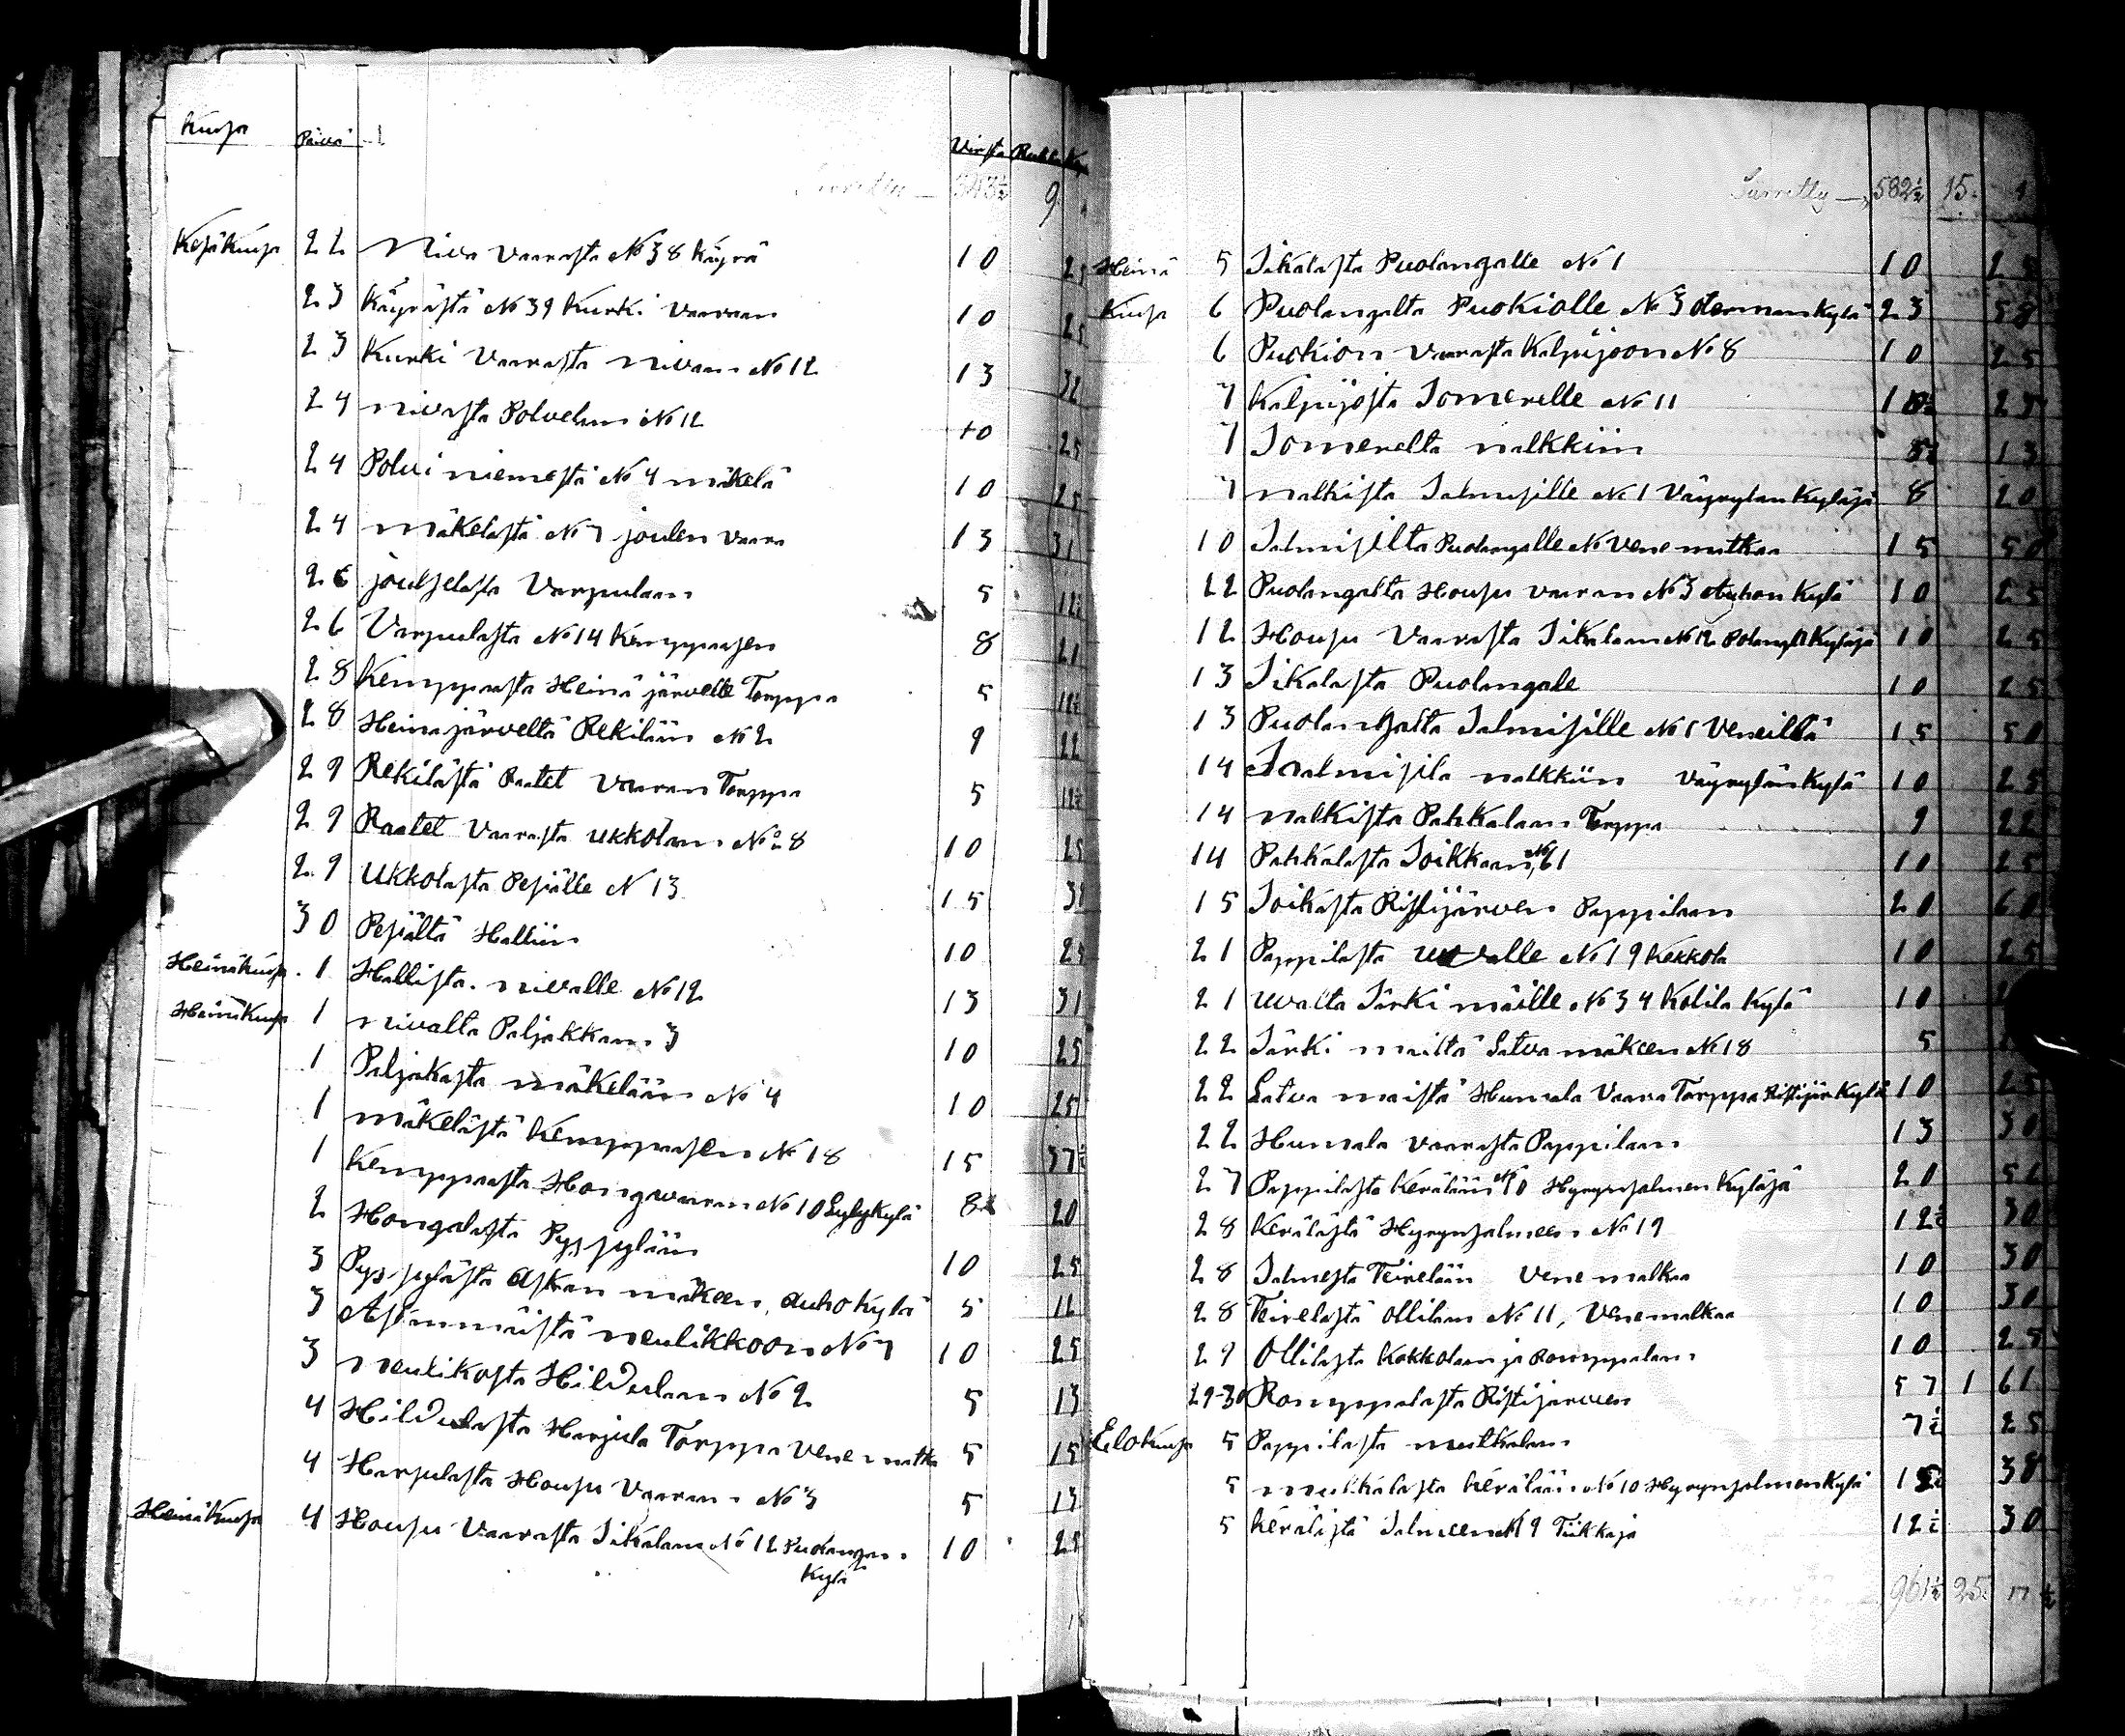 Kuusa Päivä Virsta Rupla Kop
Siirretty — 343½ 9
Kesäkuusa 22 Niva Vaarasta No 38 Käyrä 10 25
23 Käyrästä No 39 Kurki Vaaraan 10 25
23 Kurki Vaarasta nivaan No 12 13 32
24 nivasta Polvelaan No 12 10 25
24 Polvi niemestä No 4 mäkelä 10 25
24 mäkelästä No 7 joulen vaara 13 31
26 jouhselasta Varpulaan 5 12½
26 Varpulasta No 14 Kemppaasen 8 21
28 Kemppaasta Heinä järvelle Torppa 5 12½
28 Heinajärveltä Rekilään No 2 9 22
29 Rekilästä Raatet Vaaran Torppa 5 12½
29 Raatet Vaarasta Ukkolaan No 28 10 25
29 Ukkolasta Pesiälle N 13 15 31
30 Pesiältä Halliin 10 25
Heinäkuusa 1 Hallista nivalle No 12 13 31
Heinäkuusa 1 nivalta Paljakkaan 3 10 25
1 Paljakasta mäkelään No 4 10 25
1 mäkelästä Kemppaasen No 18 15 37½
1 Kemppaasta Hongvaaran No 10 Lylykylä 8 20
2 Hongalasta Pyssylään 10 25
3 Pyssylästä Askan mäkeen, Auhokylä 5 12
3 Askanmäistä neulikkoon No 7 10 25
3 neulikosta Hildulaan No 2 5 13
4 Hildulasta Harjula Torppa Vene matka 5 15
4 Harjulasta Housu Vaaran No 3 5 13
Heinäkuusa 4 Housu Vaarasta Sikalaan No 12 Puolangan 10 25
Kylä
Siirretty — 582½ 15
Heinä 5 Sikalasta Puolangalle No 1 10 25
Kuusa 6 Puolangalta Puokiolle No 3 Kylä 23 58
6 Puokion vaarasta Kalpiojoon No 8 10 25
7 Kalpiosta Somerelle No 11 10 25
7 Somerelta nalkkiin 5½ 13
7 nalkista Salmisille No 1 Väyrylan Kyläsä 8 20
10 Salmisilta Puolangalle No Vene matkaa 15 50
12 Puolangalta Housu vaaran No 3 Auhon Kylä 10 25
12 Housu Vaarasta Sikalaan No 12 Kyläsä 10 25
13 Sikalasta Puolangale 10 25
13 Puolangalta Salmisille No 1 Veneillä 15 50
14 Salmisila nalkkiin Väyrylän Kylä 10 25
14 nalkista Pahkalaan Torppa 9 22
14 Pahkalasta Toikkaan No 61 10 25
15 Toikasta Ristijärven Pappilaan 20 60
21 Pappilasta uvalle No 19 Kekkola 10 25
21 uvalta Särki mäille No 34 Kolila Kylä 10
22 Särki mailtä Latva mäkeen No 18 5
22 Latva maistä Humala Vaara Torppa Ristijär Kylä 10 25
22 Humala vaarasta Pappilaan 13 30
27 Pappilasta Kerälään No 10 Hyrynsalmen Kyläsä 20 52
28 Kerälästä Hyrynsalmeen No 19 12½ 30
28 Salmesta Teirelään Vene matkaa 10 30
28 Teirelästä Ollilaan No 11, Venematkaa 10 30
29 Ollilasta Kokkolaan ja Romppalaan 10 25
29-30 Romppalasta Ristijarveen 57 1 61
Elokuusa 5 Pappilasta mutkalaan 7½ 25
5 mutkalasta Kerälään No 10 Hyrynsalmen Kylä 15 38
5 Kerälästä Salmeen No 19 Tiikkaja 12½ 30
961½ 25 17½